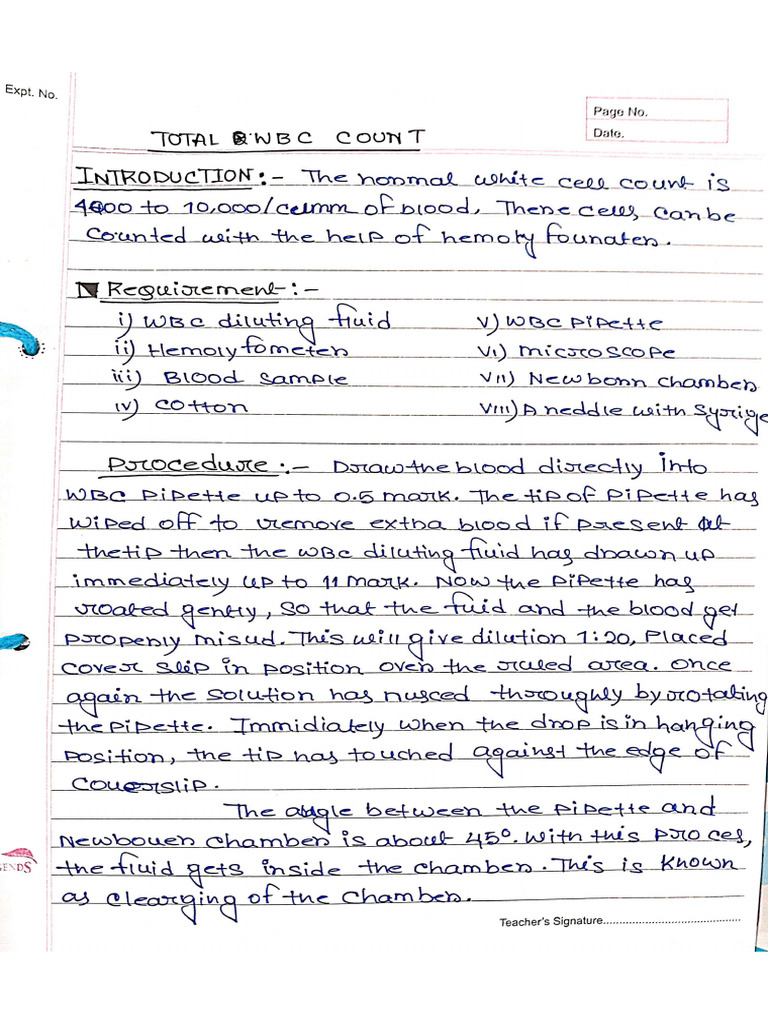 Expt. No.
Page No.
Date.
TOTAL WBC COUNT
INTRODUCTION:- The normal white cell count is
4000 to 10,000/cumm of blood, These cells, can be
counted with the help of hemoly founater.
Requirement:-
i) WBC diluting fluid
v) WBC pipette
ii) Hemoly fometer
vi) microscope
iii) Blood sample
vii) Newborn chamber
iv) cotton
viii) A neddle with syrige
Procedure:- Draw the blood directly into
WBC pipette up to 0.5 mark. The tip of pipette has
wiped off to remove extra blood if present at
the tip then the WBC diluting fluid has drawn up
immediately up to 11 mark. Now the pipette has
roated gently, so that the fluid and the blood get
properly misud. This will give dilution 1:20, Placed
cover slip in position over the ruled area. Once
again the solution has nusced thoroughly by rotating
the pipette. Immidiately when the drop is in hanging
position, the tip has touched against the edge of
coverslip.
The angle between the pipette and
Newbouer chamber is about 45°. With this proces,
the fluid gets inside the chamber. This is known
as clearging of the chamber.
ENDS
Teacher's Signature